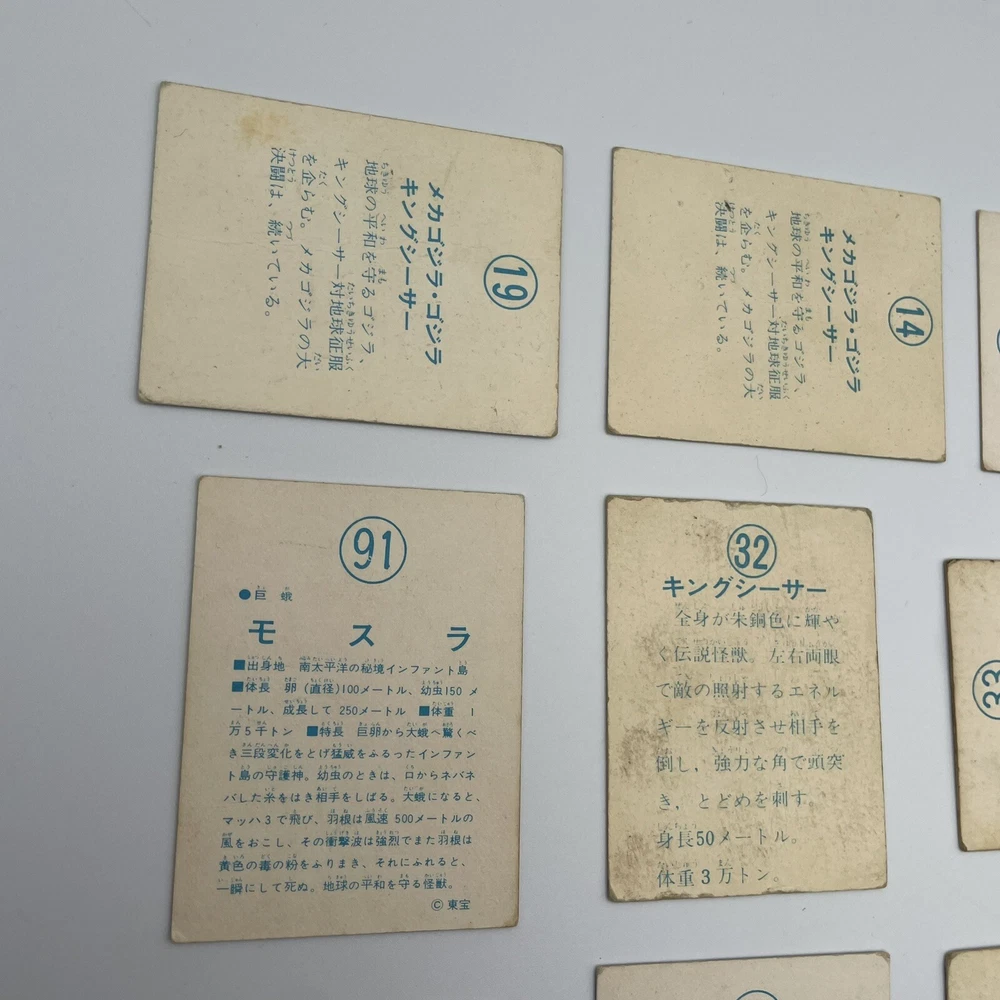 19
メカゴジラ・ゴジラ
キングシーサー
地球の平和を守るゴジラ、
キングシーサー対地球征服
を企らむ。メカゴジラの大
決闘は、続いている。
14
メカゴジラ・ゴジラ
キングシーサー
地球の平和を守るゴジラ、
キングシーサー対地球征服
を企らむ。メカゴジラの大
決闘は、続いている。
91
●巨蛾
モスラ
■出身地 南太平洋の秘境インファント島
■体長 卵(直径)100メートル、幼虫150メ
ートル、成長して250メートル ■体重 1
万5千トン ■特長 巨卵から大蛾へ驚くべ
き三段変化をとげ猛威をふるったインファン
ト島の守護神。幼虫のときは、口からネバネ
バした糸をはき相手をしばる。大蛾になると、
マッハ3で飛び、羽根は風速500メートルの
風をおこし、その衝撃波は強烈でまた羽根は
黄色の毒の粉をふりまき、それにふれると、
一瞬にして死ぬ。地球の平和を守る怪獣。
©東宝
32
キングシーサー
全身が朱銅色に輝や
く伝説怪獣。左右両眼
で敵の照射するエネル
ギーを反射させ相手を
倒し，強力な角で頭突
き，とどめを刺す。
身長50メートル。
体重3万トン。
33